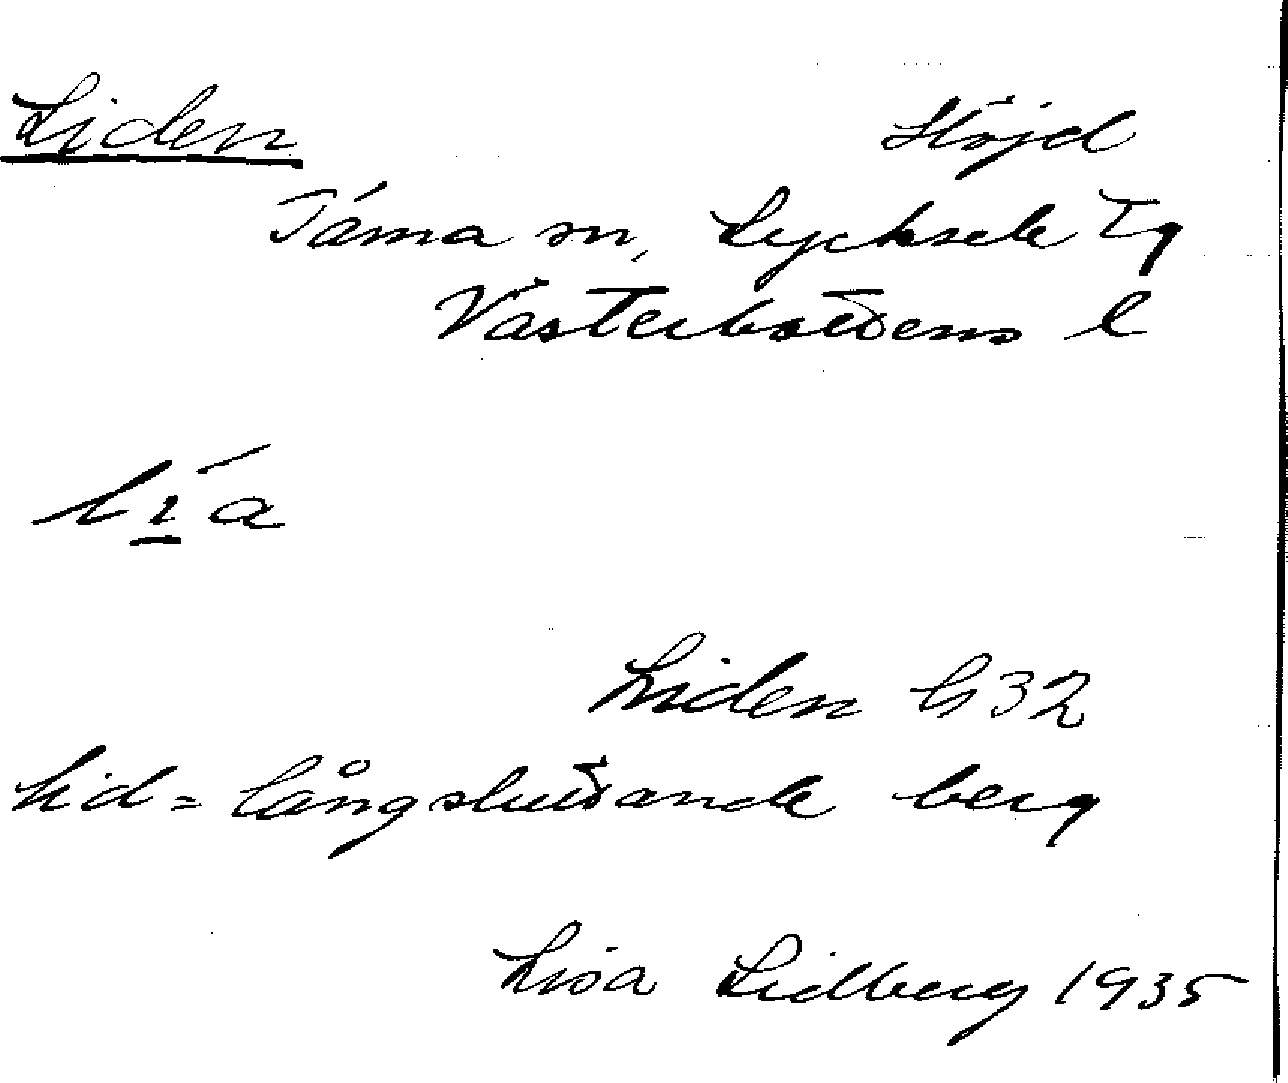 Liden Höjd
Tärna sn, Lycksele tg
Västerbottens l
lí̱a
Liden G32
Lid = långsluttande berg
Lisa Lidberg 1935